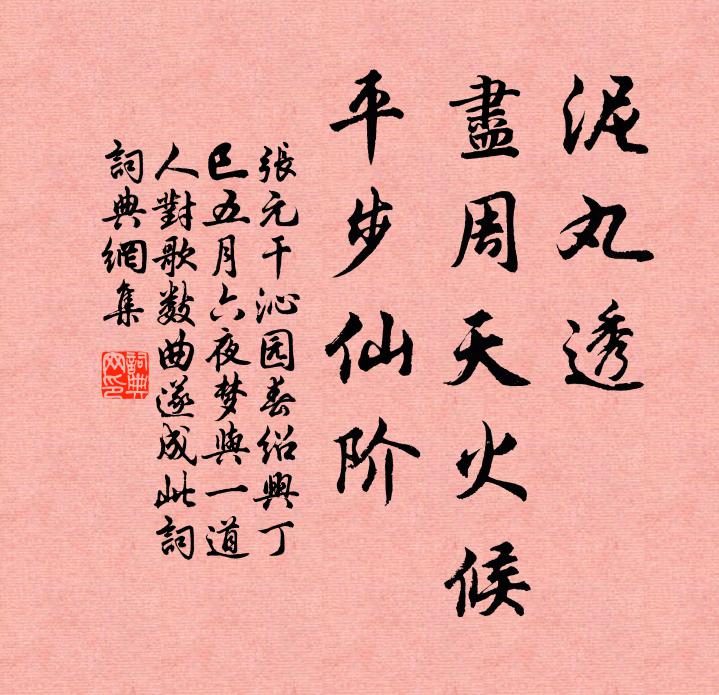 泥丸透
盡周天火候
平步仙阶
張元干沁园春绍興丁
巳五月六夜梦與一道
人對歌数曲遂成此詞
詞典網集
詞典
网印